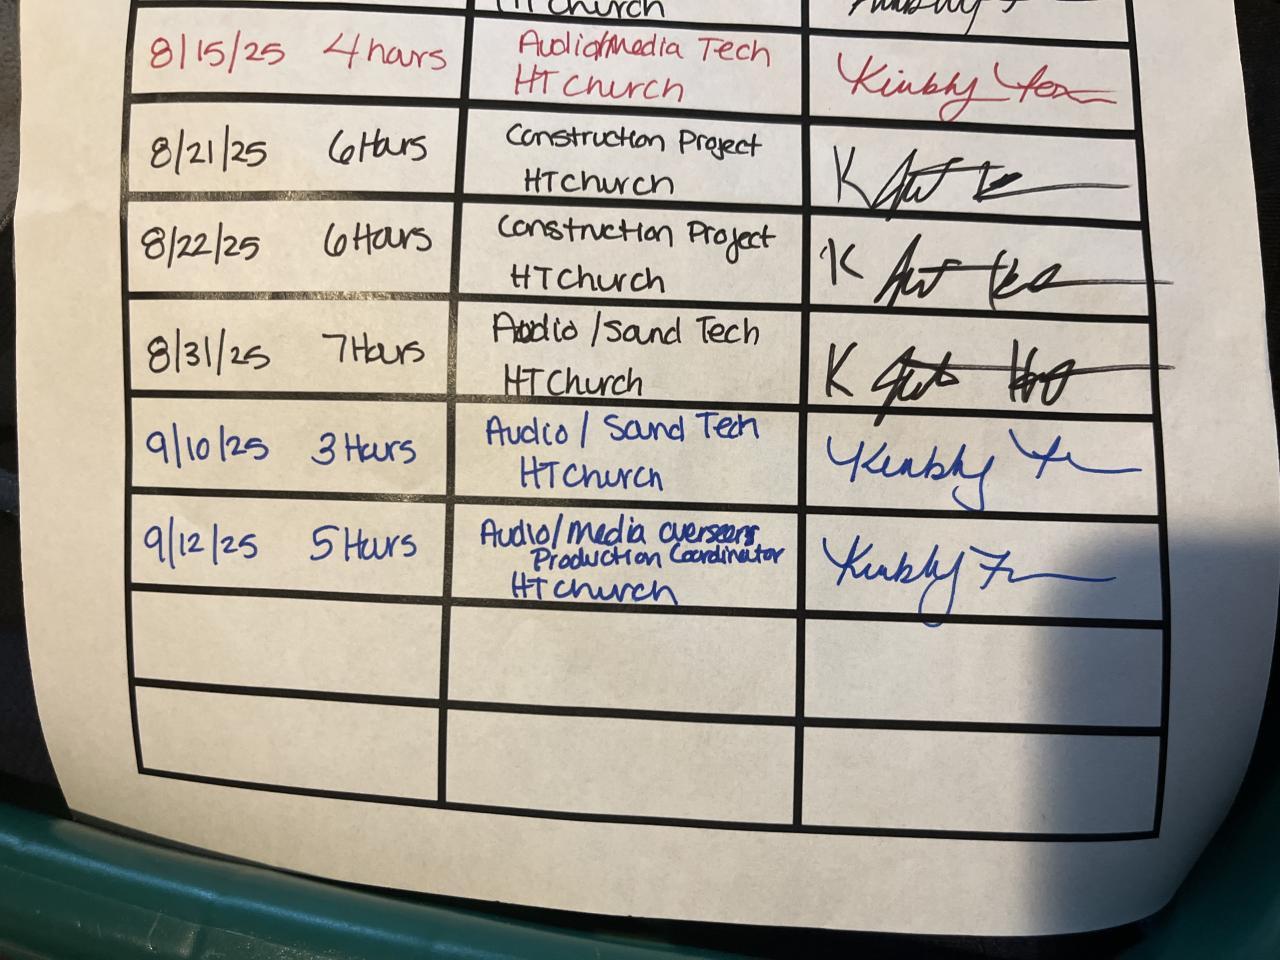 HT Church
8/15/25 4 hours Audio/Media Tech
HT Church
8/21/25 6 Hours Construction Project
HT Church K
8/22/25 6 Hours Construction Project
HT Church K
8/31/25 7 Hours Audio / Sound Tech
HT Church K
9/10/25 3 Hours Audio / Sound Tech
HT Church
9/12/25 5 Hours Audio/Media overseers
Production Coordinator
HT Church